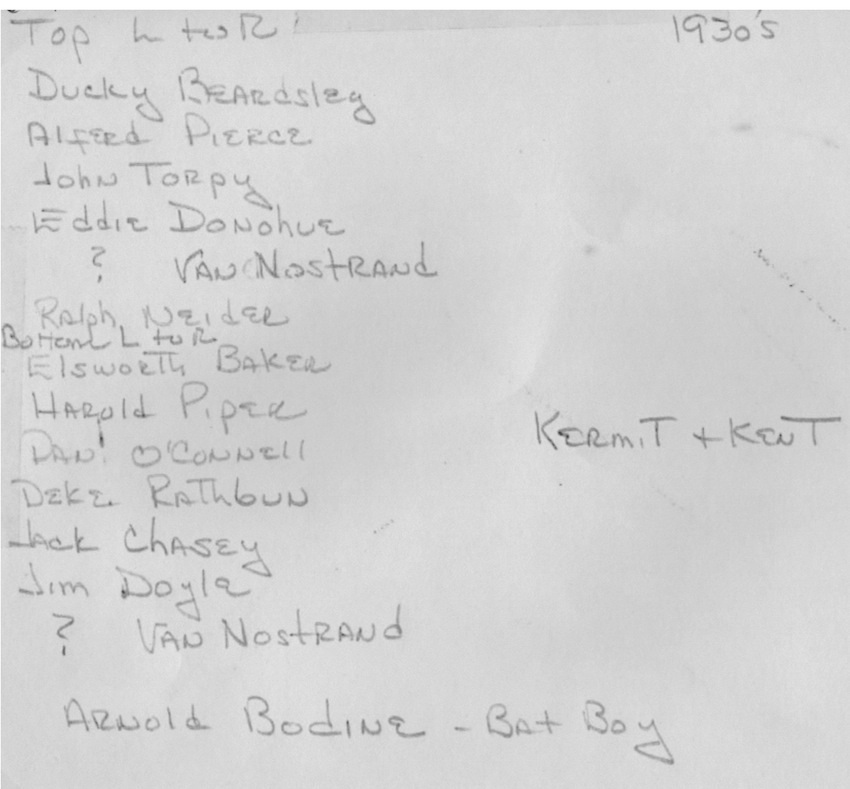 Top L to R 1930's
Ducky Beardsley
Alferd Pierce
John Torpy
Eddie Donohue
? Van Nostrand
Ralph Neider
Bottom L to R
Elsworth Baker
Harold Piper
Dan! O'Connell
Kermit + Kent
Deke Rathbun
Jack Chasey
Jim Doyle
? Van Nostrand
Arnold Bodine - Bat Boy